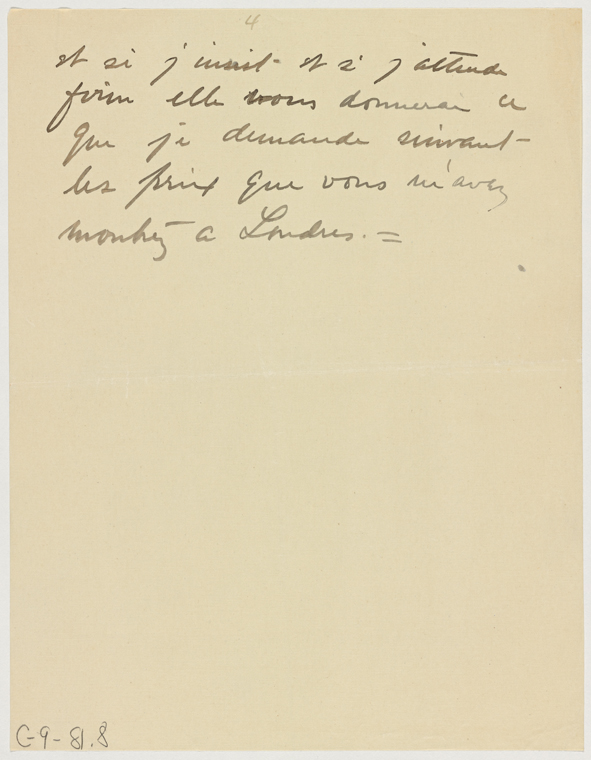 4
et si j'insist et si j'attende
firm elle vous donnerai ce
que je demande suivant
les prix que vous m'avez
montrez a Londres. =
C-9-81.8